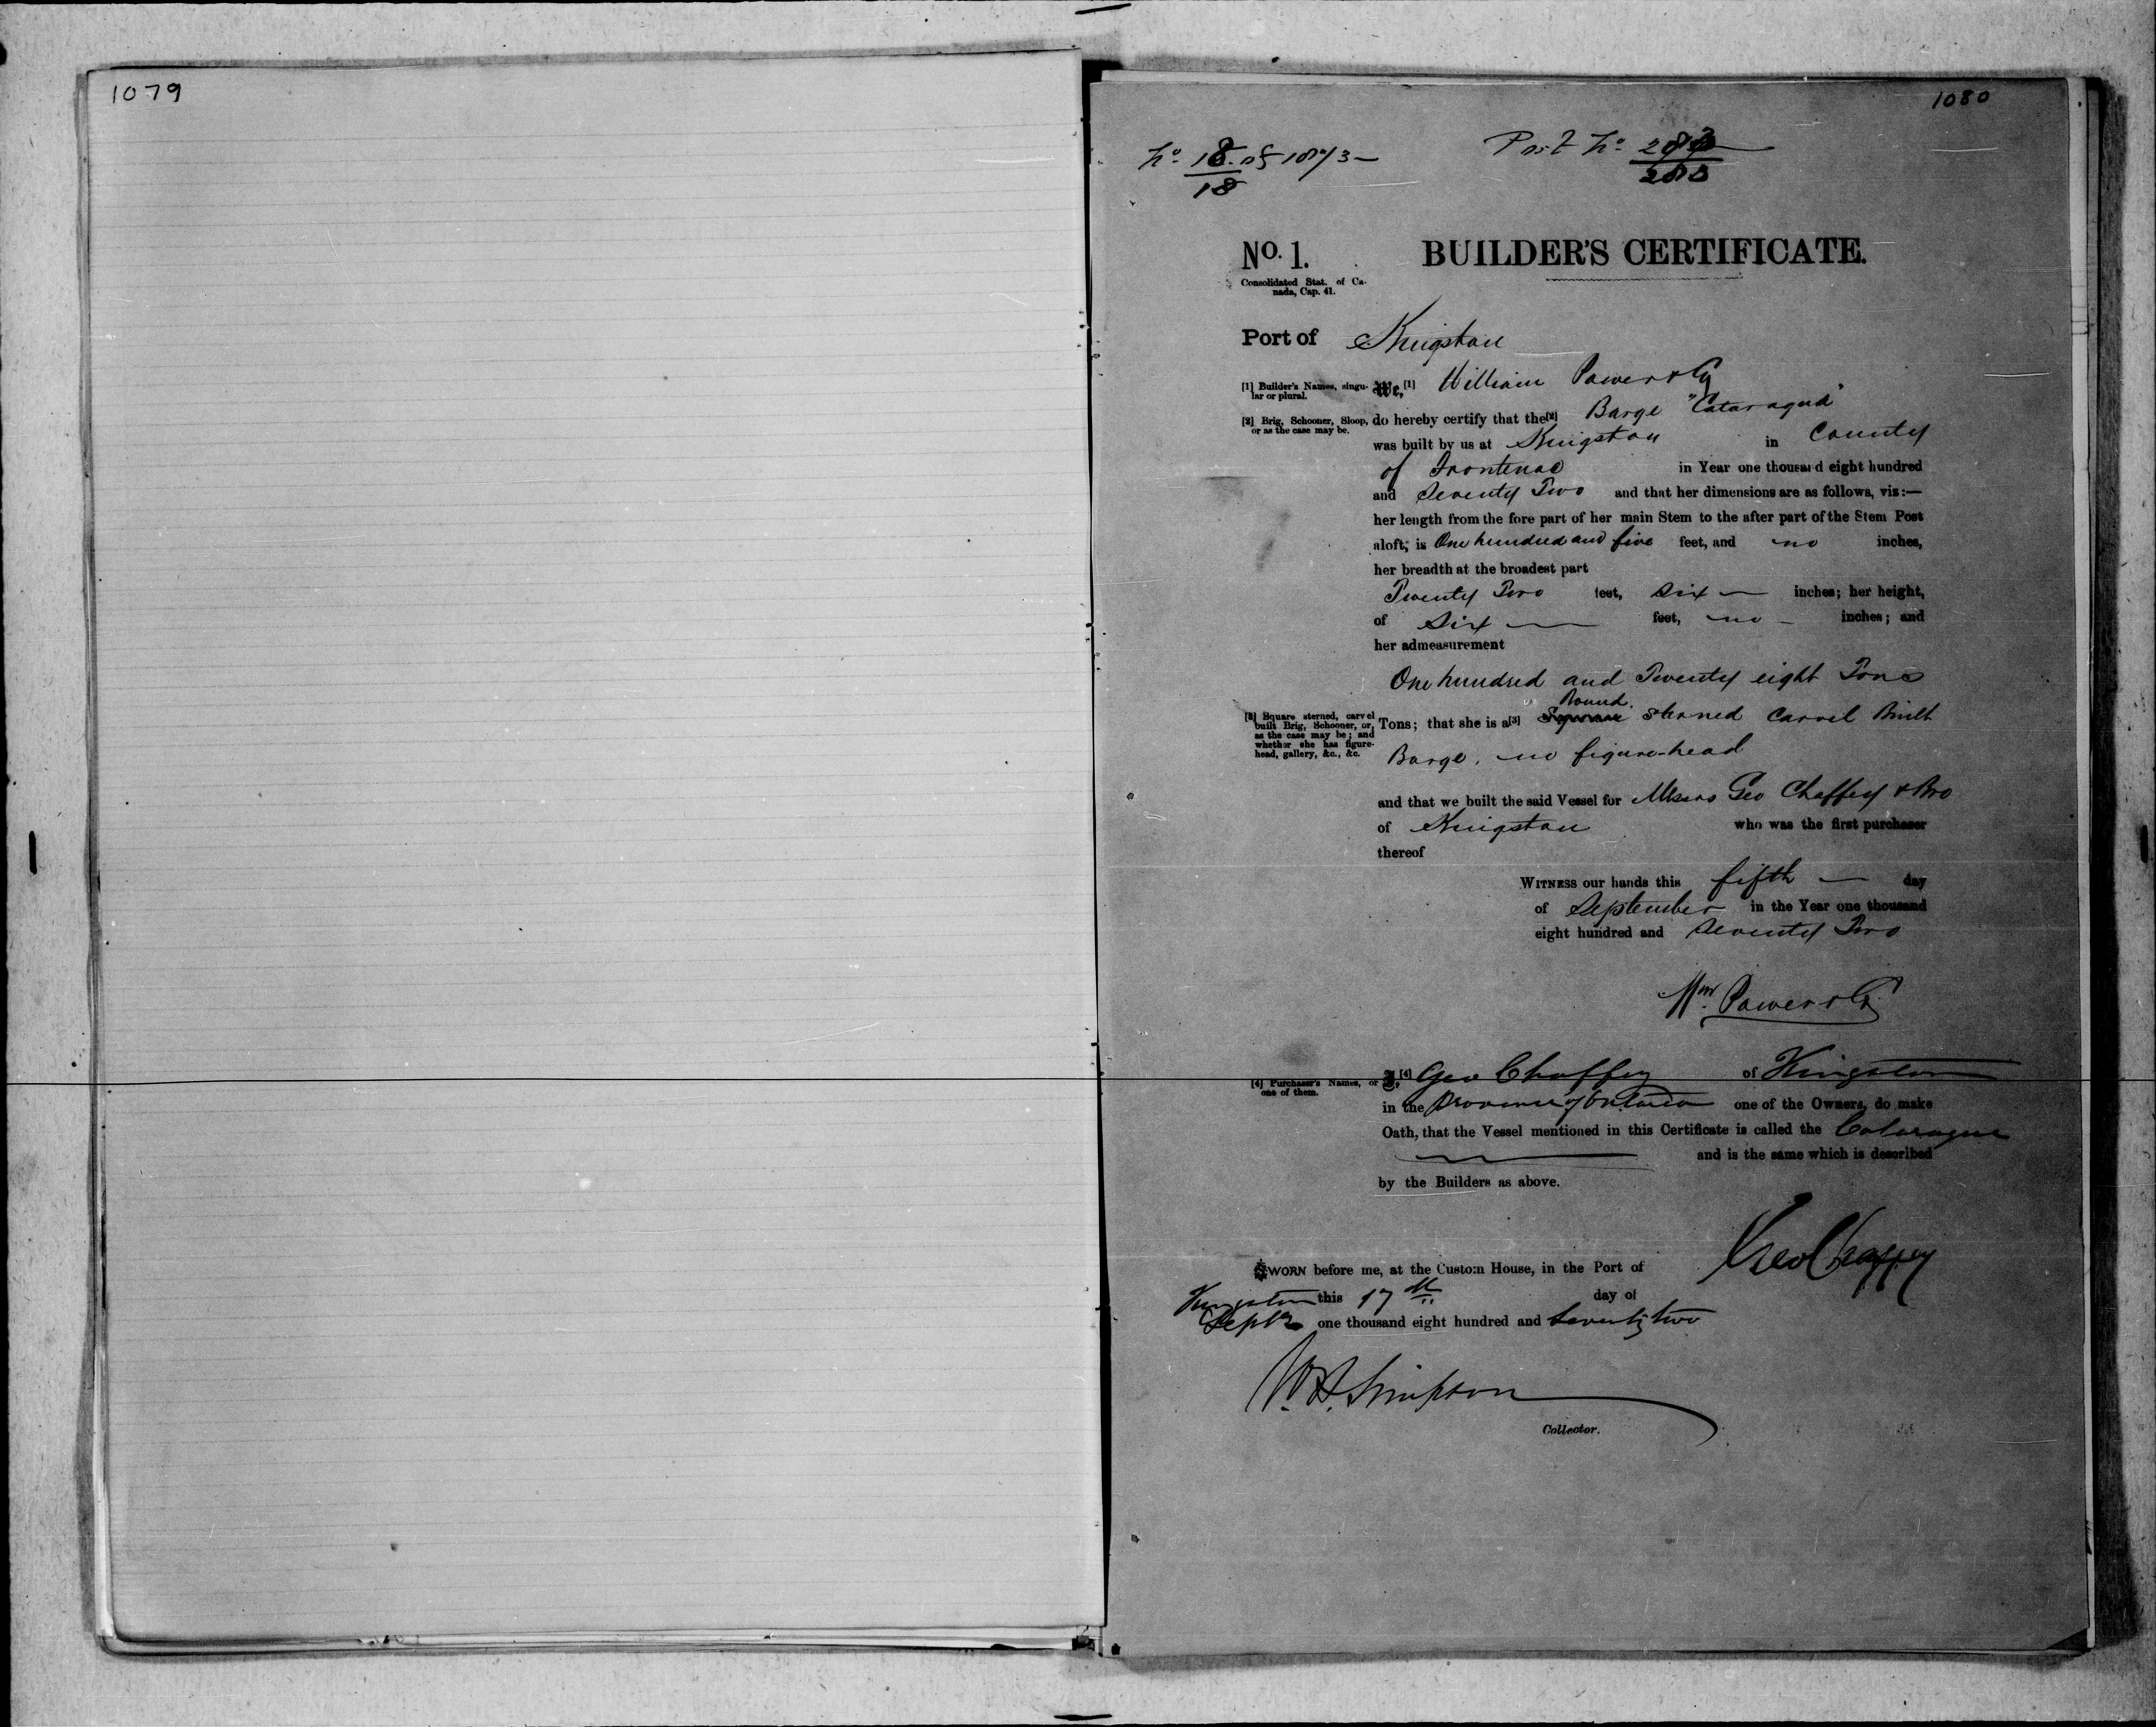 1079
1080
No. 18 of 1873 —
18
Port No.
283
No. 1.
BUILDER'S CERTIFICATE.
Consolidated Stat. of Ca-
nada, Cap. 41.
Port of Kingston
[1] Builder's Names, singu-
lar or plural.
We,[1] William Power & Cy
[2] Brig, Schooner, Sloop,
or as the case may be.
do hereby certify that the[2] Barge "Cataraqui"
was built by us at Kingston in County
of Frontenac in Year one thousand eight hundred
and Seventy Two and that her dimensions are as follows, viz:—
her length from the fore part of her main Stem to the after part of the Stem Post
aloft, is One hundred and five feet, and no inches,
her breadth at the broadest part
Twenty Two feet, Six — inches; her height,
of Six — feet, no — inches; and
her admeasurement
One hundred and Twenty eight Tons
[3] Square sterned, carvel
built Brig, Schooner, or,
as the case may be; and
whether she has figure-
head, gallery, &c., &c.
Round
Tons; that she is a[3] Square sterned Carvel Built
Barge, no figure-head
and that we built the said Vessel for Messrs Geo Chaffey & Bro
of Kingston who was the first purchaser
thereof
WITNESS our hands this fifth — day
of September in the Year one thousand
eight hundred and Seventy Two
Wm. Power & Cy
[4] Purchaser's Names, or
one of them.
I,[4] Geo Chaffey of Kingston
in the Province of Ontario one of the Owners, do make
Oath, that the Vessel mentioned in this Certificate is called the Cataraqui
and is the same which is described
by the Builders as above.
Geo Chaffey
SWORN before me, at the Custom House, in the Port of
Kingston this 17th day of
Septr one thousand eight hundred and Seventy two
W. H. Simpson
Collector.